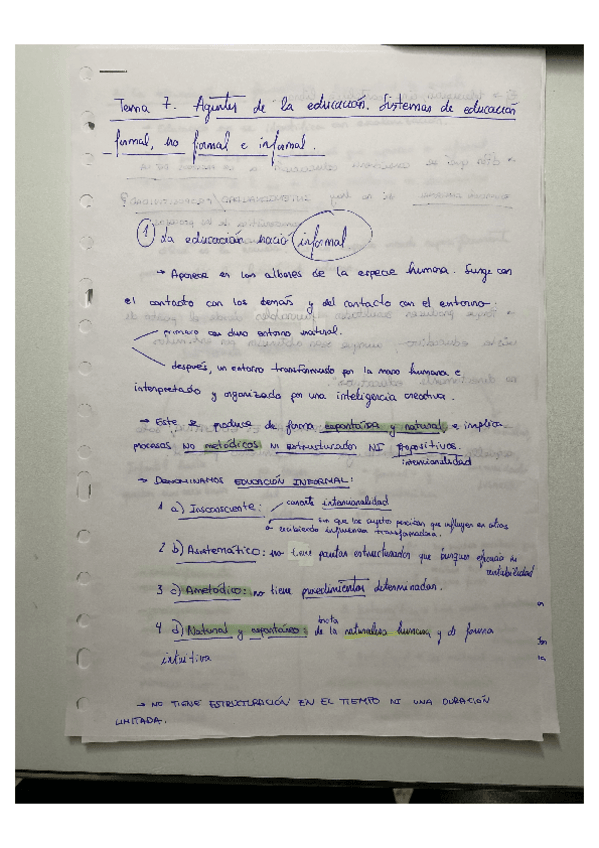 Tema 7. Agentes de la educación. Sistemas de educación
formal, no formal e informal.
1 La educación nació informal
→ Aparece en los albores de la especie humana. Surge con
el contacto con los demás y del contacto con el entorno.
primero con duro entorno natural.
después, un entorno transformado por la mano humana e
interpretado y organizado por una inteligencia creativa.
→ Este se produce de forma espontaísa y natural, e implica
procesos NO metódicos NI estructurados NI propositivos.
intencionalidad
→ DENOMINAMOS EDUCACIÓN INFORMAL:
1 a) Inconsciente: canente intencionalidad
sin que los sujetos perciban que influyen en otros
o recibiendo influencia transformadora.
2 b) Asistemático: no tiene pautas estructurados que busquen eficacia ni
rentabilidad
3 c) Ametódico: no tiene procedimientos determinados.
4 d) Natural y espontáneo: brota
de la naturaleza humana y de forma
intuitiva
→ NO TIENE ESTRUCTURACIÓN EN EL TIEMPO NI UNA DURACIÓN
LIMITADA.